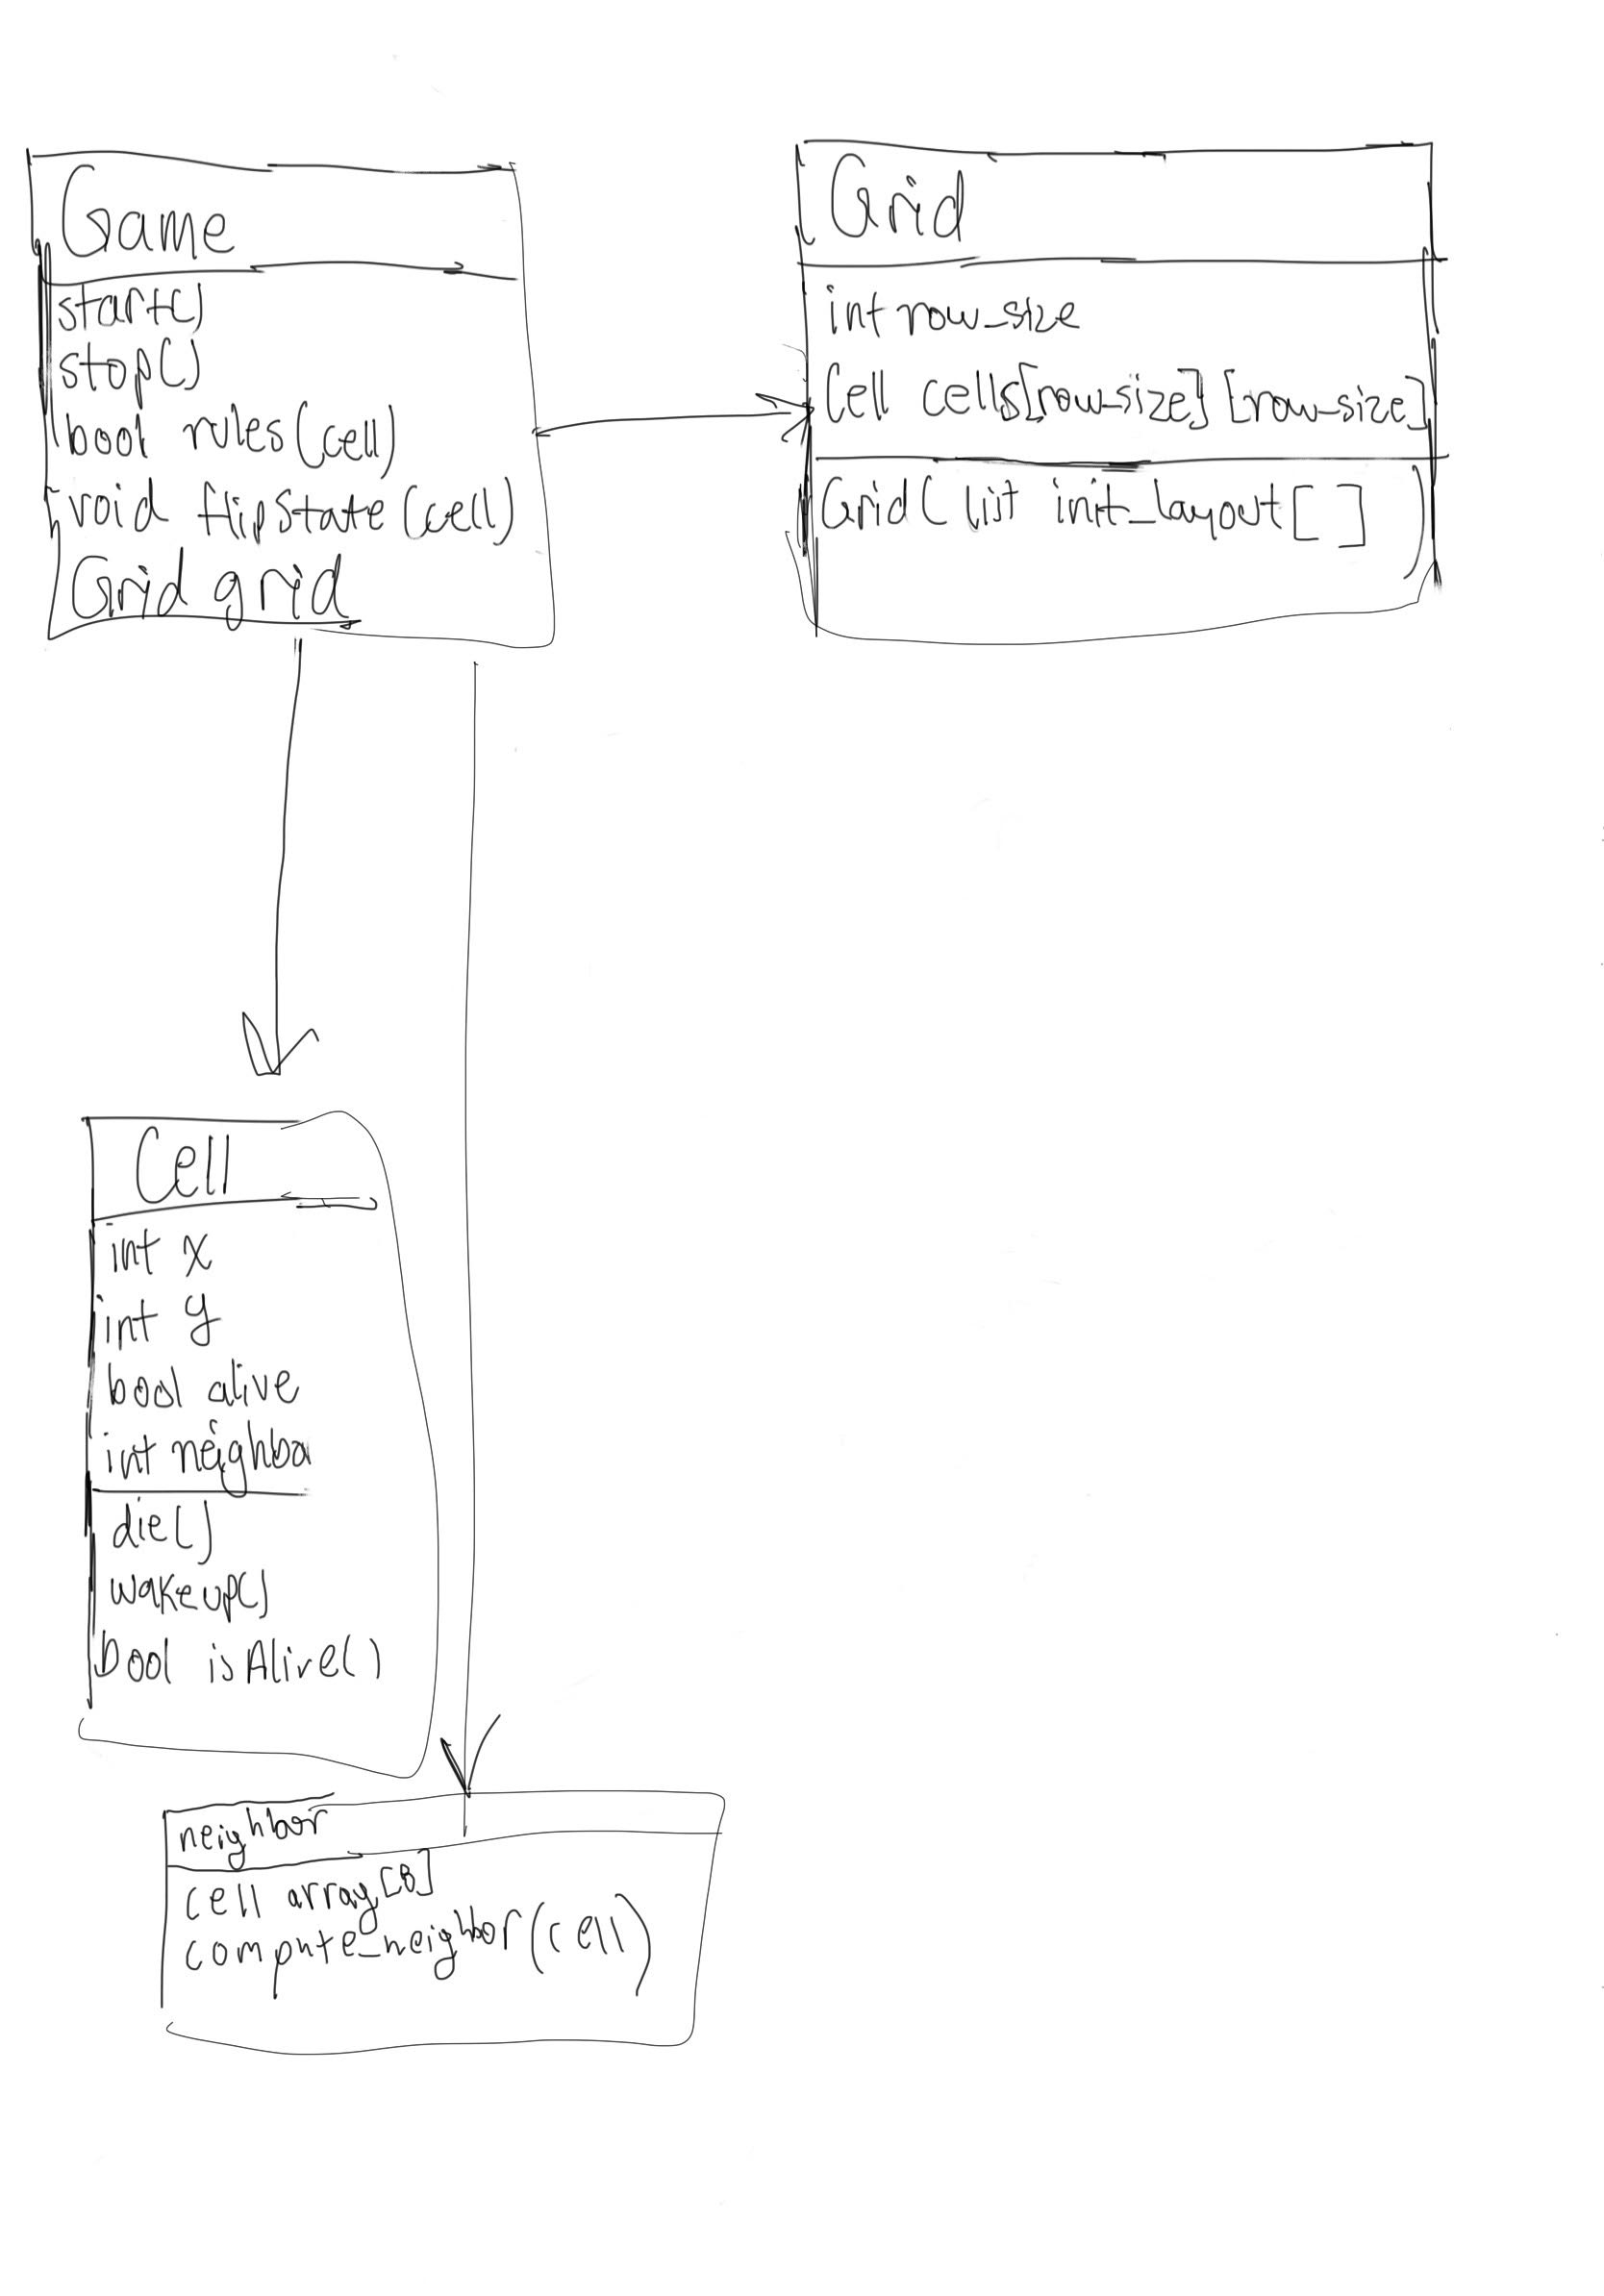 Game
start()
stop()
bool rules(cell)
void flipState(cell)
Grid grid
Grid
int row_size
Cell cells[row_size][row_size]
Grid(list init_layout[ ] )
Cell
int x
int y
bool alive
int neighbo
die()
wakeup()
bool isAlive()
neighbor
cell array[8]
compute_neighbor(cell)